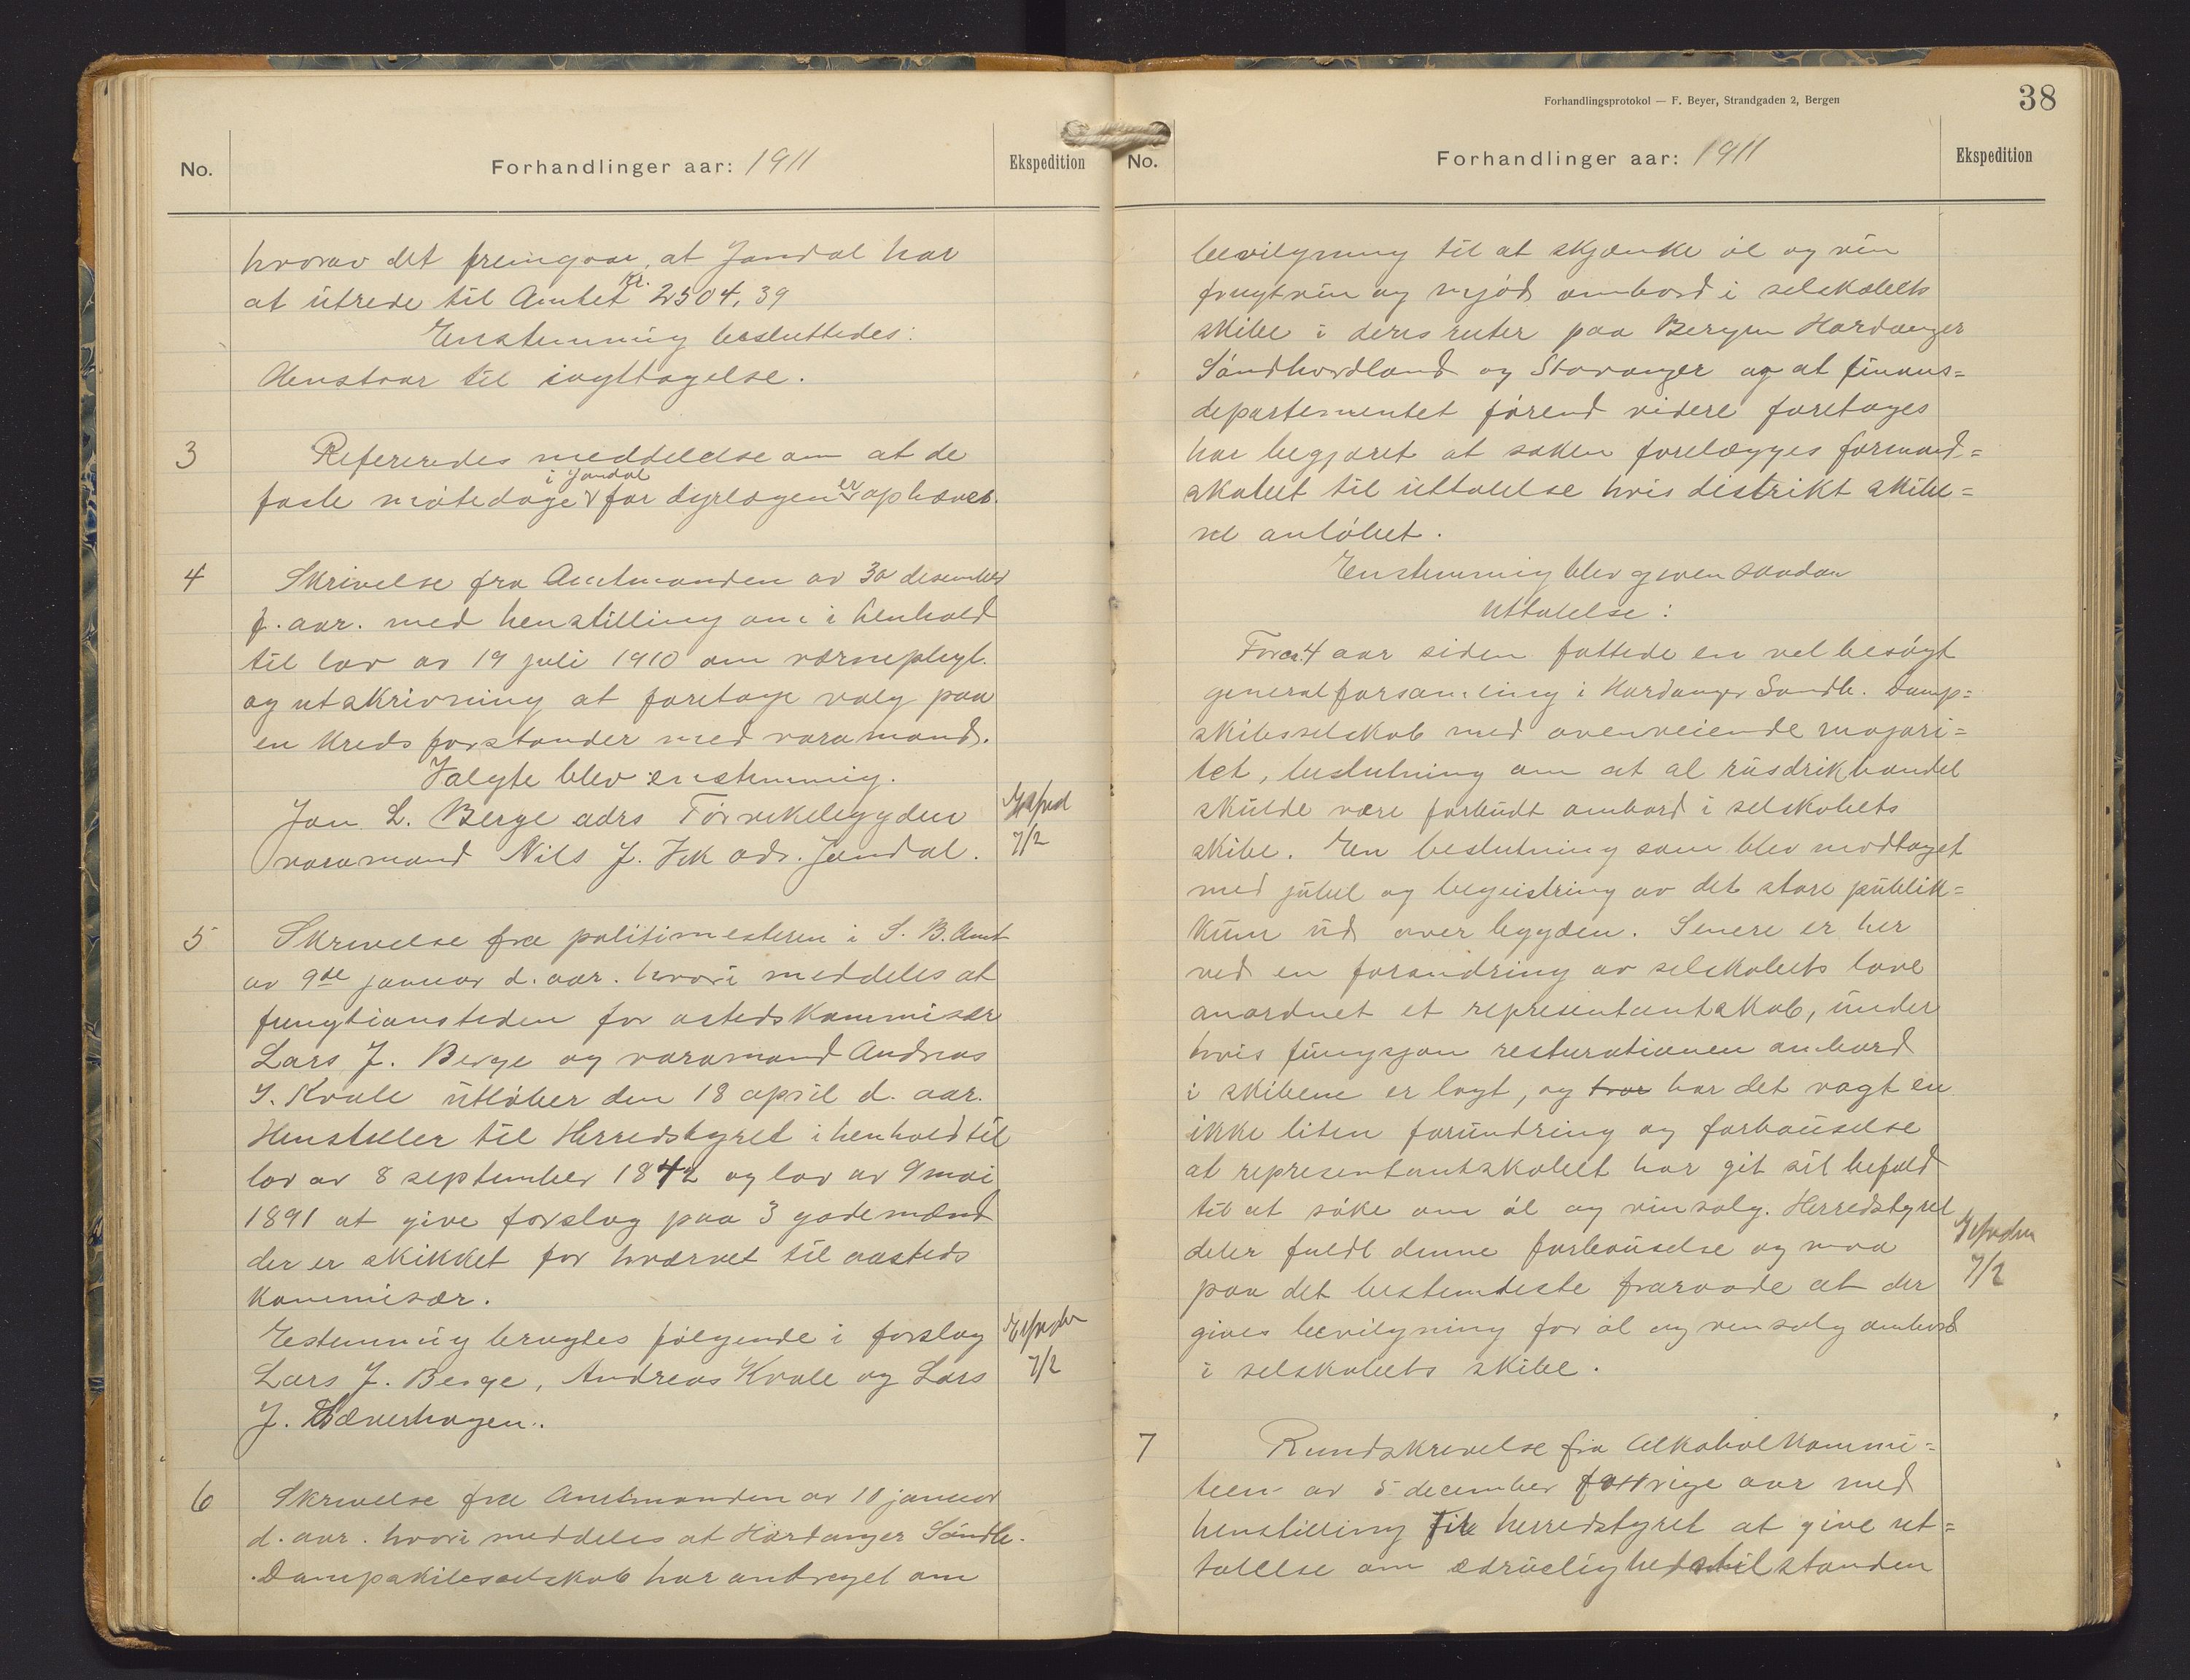 No.
Forhandlinger aar: 1911
Ekspedition
hvorav det fremgaar, at Jondal har
at utrede til Amtet kr. 2504,39
Enstemmig besluttedes:
Henstaar til iagttagelse.
3
Refereredes meddelelse om at de
faste møtedage i Jondal for dyrlægen er ophævet.
4
Skrivelse fra Amtmanden av 30 desember
f. aar. med henstilling om i henhold
til lov av 19 juli 1910 om værnepligt.
og utskrivning at foretage valg paa
en kredsforstander med varamand.
Valgte blev enstemmig.
Jon L. Berge adrs Torvikebygden
varamand Nils J. Vik adr. Jondal.
7/2
5
Skrivelse fra politimesteren i S. B. Amt
av 9de januar d. aar. hvori meddeles at
fungtionstiden for astedskommisær
Lars J. Berge og varamand Andreas
J. Kvale utløber den 18 april d. aar.
Henstiller til Herredstyret i henhold til
lov av 8 september 1842 og lov av 9 mai
1891 at give forslag paa 3 gode mænd
der er skikket for hværvet til aasteds
kommisær.
Estemmig bragtes følgende i forslag
7/2
Lars J. Berge, Andreas Kvale og Lars
J. Sæverhagen.
6
Skrivelse fra Amtmanden av 10 januar
d. aar. hvori meddeles at Hardanger Søndh.
Dampskibsselskab har andraget om
Forhandlingsprotokol — F. Beyer, Strandgaden 2, Bergen
38
No.
Forhandlinger aar: 1911
Ekspedition
bevilgning til at skjænke øl og vin
frugtvin og mjød ombord i selskabets
skibe i deres ruter paa Bergen Hardanger
Søndhordland og Stavanger og at finans=
departementet førend videre foretages
har begjæret at saken forelægges formand=
skabet til uttalelse hvis distrikt skibe=
ne anløbet.
Enstemmig blev given saadan
uttalelse:
For ca. 4 aar siden fattede en vel besøgt
generalforsamling i Hardanger Søndh. Damp=
skibsselskab med overveiende majori=
tet, beslutning om at al rusdrikhandel
skulde være forbudt ombord i selskabets
skibe. En beslutning som blev modtaget
med jubel og begeistring av det store publik=
kum ud over bygden. Senere er her
ved en forandring av selskabets love
anordnet et representantskab, under
hvis fungsjon resturationen ombord
i skibene er lagt, og har det vagt en
ikke liten forundring og forbauselse
at representantskabet har git sit befald
til at søke om øl og vinsalg. Herredstyret
deler fuldt denne forbauselse og maa
7/2
paa det bestemteste fraraade at der
gives bevilgning for øl og vinsalg ombord
i selskabets skibe.
7
Rundskrivelse fra Alkoholkommi=
teen av 5 december forrige aar med
henstilling til herredstyret at give ut=
talelse om ædruelighedstilstanden